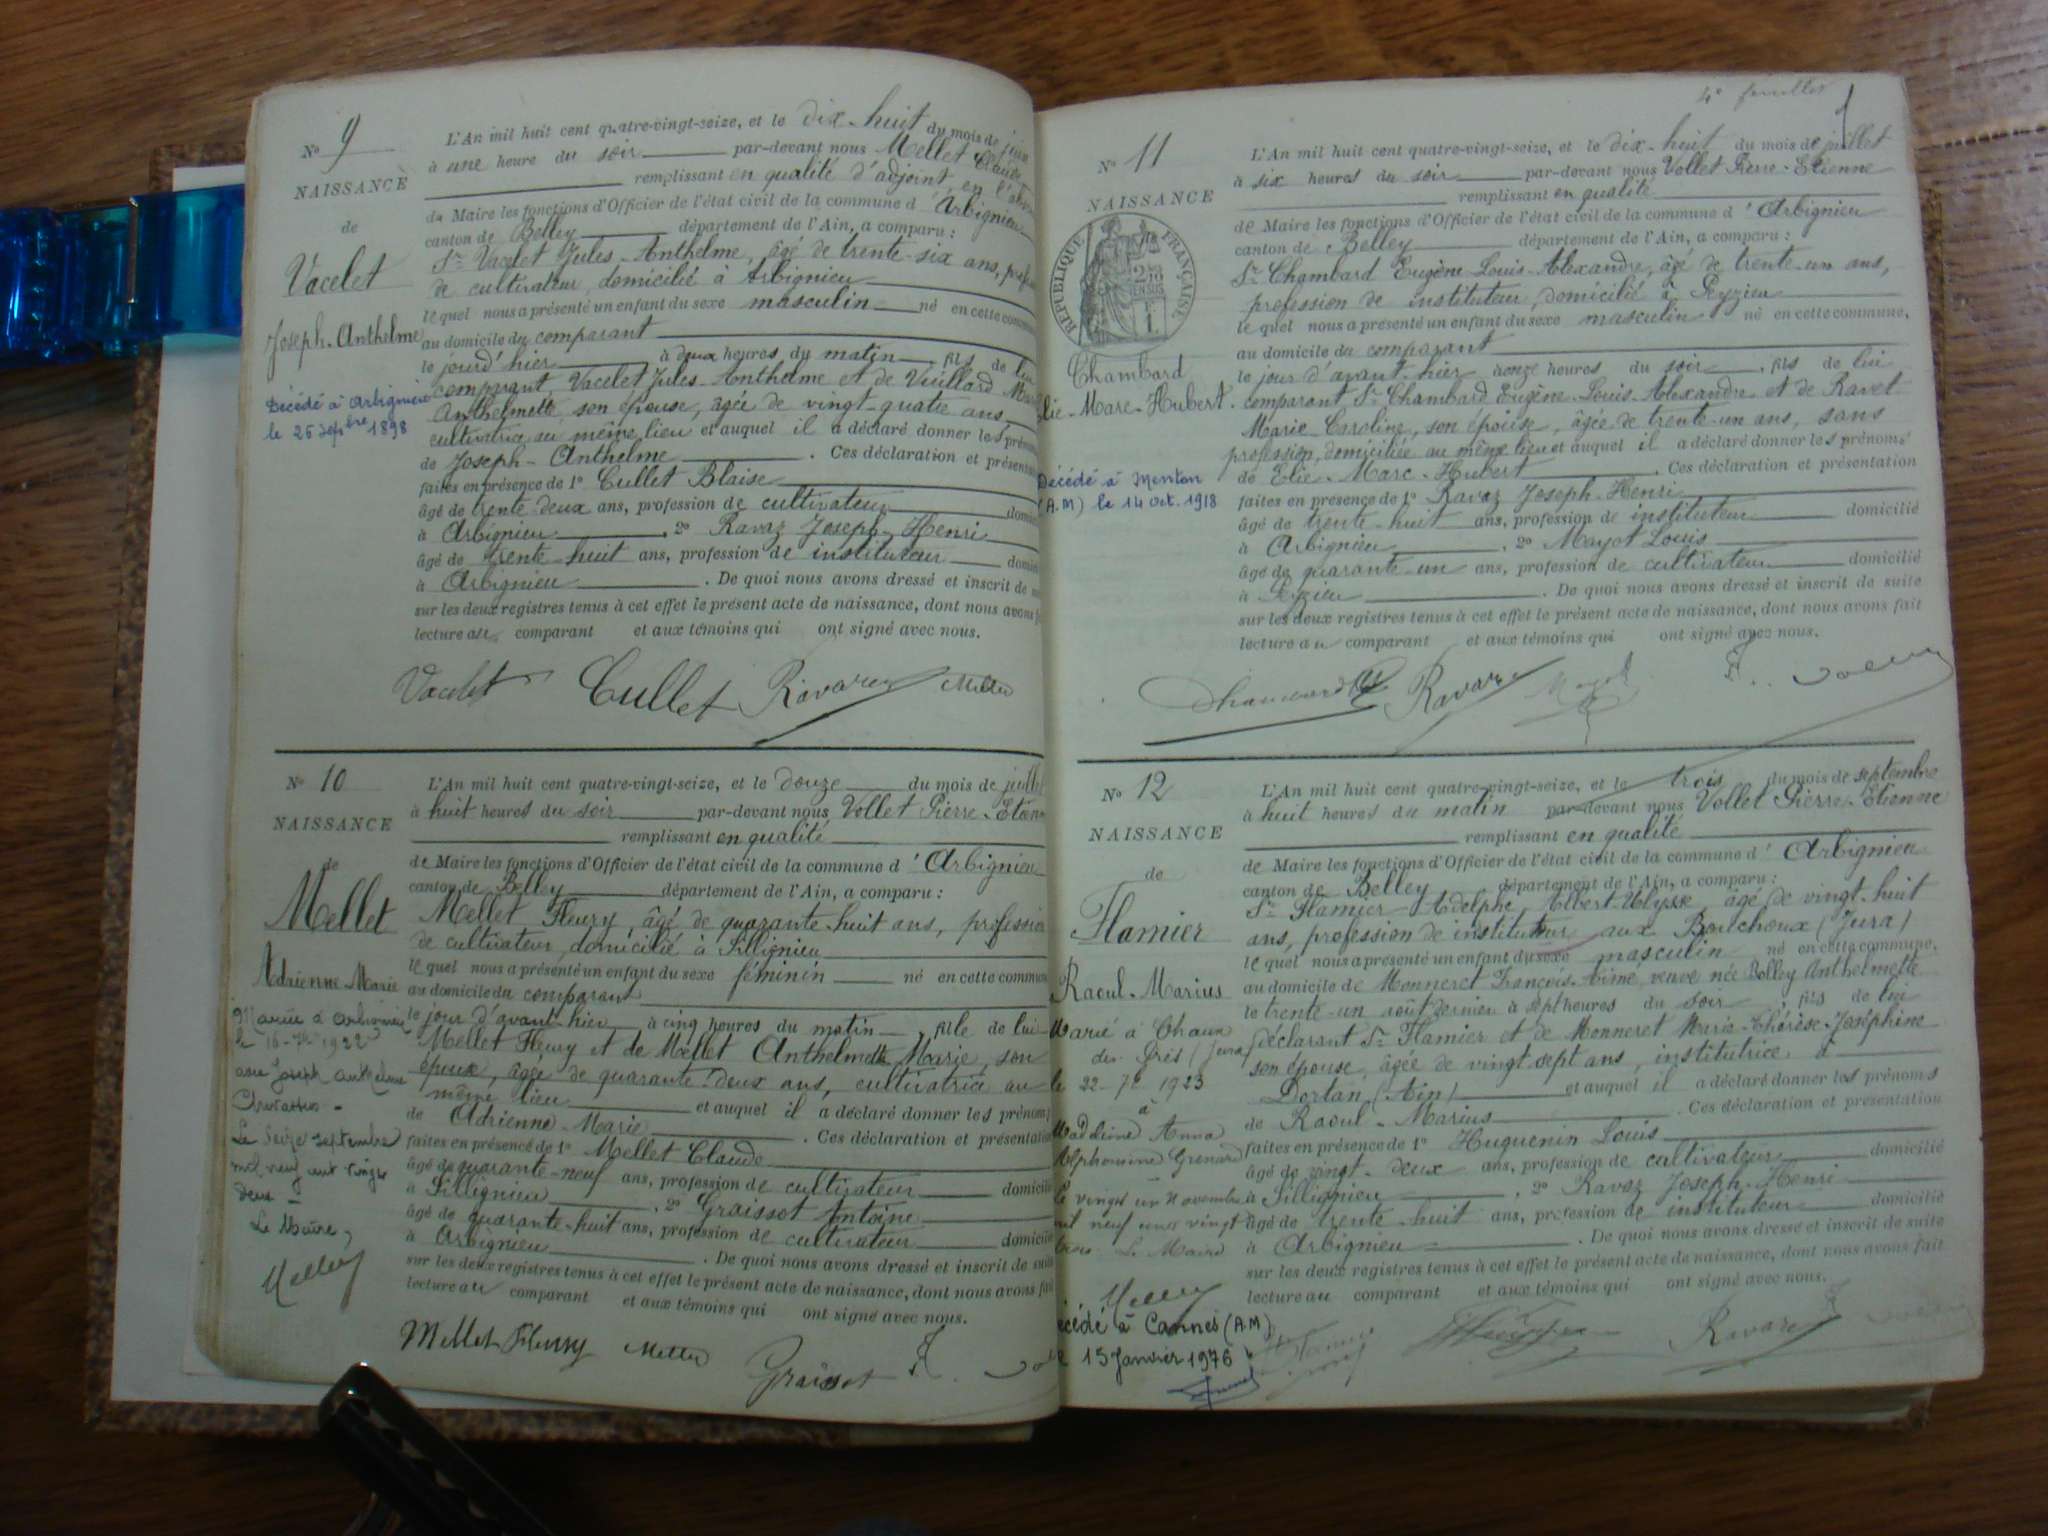 N° 9
NAISSANCE
de
Vacelet
Joseph-Anthelme
Décédé à Arbignieu
le 26 Sepbre 1898
L'An mil huit cent quatre-vingt-seize, et le dix-huit du mois de juin
à une heure du soir par-devant nous Mellet Claude
remplissant en qualité d'adjoint, en l'
du Maire les fonctions d'Officier de l'état civil de la commune d'Arbignieu
canton de Belley département de l'Ain, a comparu :
Sr Vacelet Jules-Anthelme, âgé de trente-six ans,
de cultivateur domicilié à Arbignieu
lequel nous a présenté un enfant du sexe masculin né en cette
au domicile du comparant
le jour d'hier à deux heures du matin, fils de lui
comparant Vacelet Jules-Anthelme et de Vuillard
Anthelmette, son épouse, âgée de vingt-quatre ans,
cultivatrice au même lieu et auquel il a déclaré donner les
de Joseph-Anthelme. Ces déclaration et
faites en présence de 1° Cullet Blaise
âgé de trente deux ans, profession de cultivateur
à Arbignieu, 2° Ravaz Joseph-Henri
âgé de trente-huit ans, profession de instituteur
à Arbignieu. De quoi nous avons dressé et inscrit de
sur les deux registres tenus à cet effet le présent acte de naissance, dont nous avons
lecture au comparant et aux témoins qui ont signé avec nous.
Vacelet Cullet Ravaz Mellet
N° 10
NAISSANCE
de
Mellet
Adrienne-Marie
Mariée à Arbignieu
le 16-7bre 1922
avec Joseph Anthelme
Le seize septembre
mil neuf cent vingt
deux -
Le Maire,
L'An mil huit cent quatre-vingt-seize, et le douze du mois de juillet
à huit heures du soir par-devant nous Vollet Pierre-Etienne
remplissant en qualité
de Maire les fonctions d'Officier de l'état civil de la commune d'Arbignieu
canton de Belley département de l'Ain, a comparu :
Mellet Fleury, âgé de quarante-huit ans, profession
de cultivateur, domicilié à Sillignieu
lequel nous a présenté un enfant du sexe féminin né en cette commune
au domicile du comparant
le jour d'avant-hier à cinq heures du matin, fille de lui
Mellet Fleury et de Mellet Anthelmette Marie, son
épouse, âgée de quarante-deux ans, cultivatrice au
même lieu et auquel il a déclaré donner les prénoms
de Adrienne-Marie. Ces déclaration et présentation
faites en présence de 1° Mellet Claude
âgé de quarante-neuf ans, profession de cultivateur domicilié
à Sillignieu, 2° Graissot Antoine
âgé de quarante-huit ans, profession de cultivateur domicilié
à Arbignieu. De quoi nous avons dressé et inscrit de suite
sur les deux registres tenus à cet effet le présent acte de naissance, dont nous avons fait
lecture au comparant et aux témoins qui ont signé avec nous.
Mellet Fleury Mellet Graissot
4e feuillet
N° 11
NAISSANCE
RÉPUBLIQUE FRANÇAISE
Chambard
Elie-Marc-Hubert
Décédé à Menton
(A.M) le 14 oct. 1918
L'An mil huit cent quatre-vingt-seize, et le dix-huit du mois de juillet
à six heures du soir par-devant nous Vollet Pierre-Etienne
remplissant en qualité
de Maire les fonctions d'Officier de l'état civil de la commune d'Arbignieu
canton de Belley département de l'Ain, a comparu :
Sr Chambard Eugène-Louis-Alexandre, âgé de trente-un ans,
profession de instituteur, domicilié à Peyzieu
lequel nous a présenté un enfant du sexe masculin né en cette commune,
au domicile du comparant
le jour d'avant-hier à onze heures du soir, fils de lui
comparant Sr Chambard Eugène-Louis-Alexandre et de Ravet
Marie-Caroline, son épouse, âgée de trente-un ans, sans
profession, domiciliée au même lieu et auquel il a déclaré donner les prénoms
de Elie-Marc-Hubert. Ces déclaration et présentation
faites en présence de 1° Ravaz Joseph-Henri
âgé de trente-huit ans, profession de instituteur domicilié
à Arbignieu, 2° Mayot Louis
âgé de quarante-un ans, profession de cultivateur domicilié
à Peyzieu. De quoi nous avons dressé et inscrit de suite
sur les deux registres tenus à cet effet le présent acte de naissance, dont nous avons fait
lecture au comparant et aux témoins qui ont signé avec nous.
Chambard Ravaz
N° 12
NAISSANCE
de
Flamier
Raoul-Marius
Marié à Chaux
des Prés (Jura)
le 22-7bre 1923
à
Madeleine Anna
Alphonsine Grenard
Le vingt un novembre
mil neuf cent vingt
trois. Le Maire
Décédé à Cannes (A.M)
le 15 Janvier 1976
L'An mil huit cent quatre-vingt-seize, et le trois du mois de septembre
à huit heures du matin par-devant nous Vollet Pierre-Etienne
remplissant en qualité
de Maire les fonctions d'Officier de l'état civil de la commune d'Arbignieu
canton de Belley département de l'Ain, a comparu :
Sr Flamier Adelphe Albert-Ulysse âgé de vingt-huit
ans, profession de instituteur aux Bouchoux (Jura)
lequel nous a présenté un enfant du sexe masculin né en cette commune,
au domicile de Monneret François-Aimé, veuve née Bolley Anthelmette
le trente-un août dernier à sept heures du soir, fils de lui
déclarant Sr Flamier et de Monneret Marie-Thérèse-Joséphine
son épouse, âgée de vingt-sept ans, institutrice à
Dortan (Ain) et auquel il a déclaré donner les prénoms
de Raoul-Marius. Ces déclaration et présentation
faites en présence de 1° Huguenin Louis
âgé de vingt-deux ans, profession de cultivateur domicilié
à Sillignieu, 2° Ravaz Joseph-Henri
âgé de trente-huit ans, profession de instituteur domicilié
à Arbignieu. De quoi nous avons dressé et inscrit de suite
sur les deux registres tenus à cet effet le présent acte de naissance, dont nous avons fait
lecture au comparant et aux témoins qui ont signé avec nous.
Ravaz